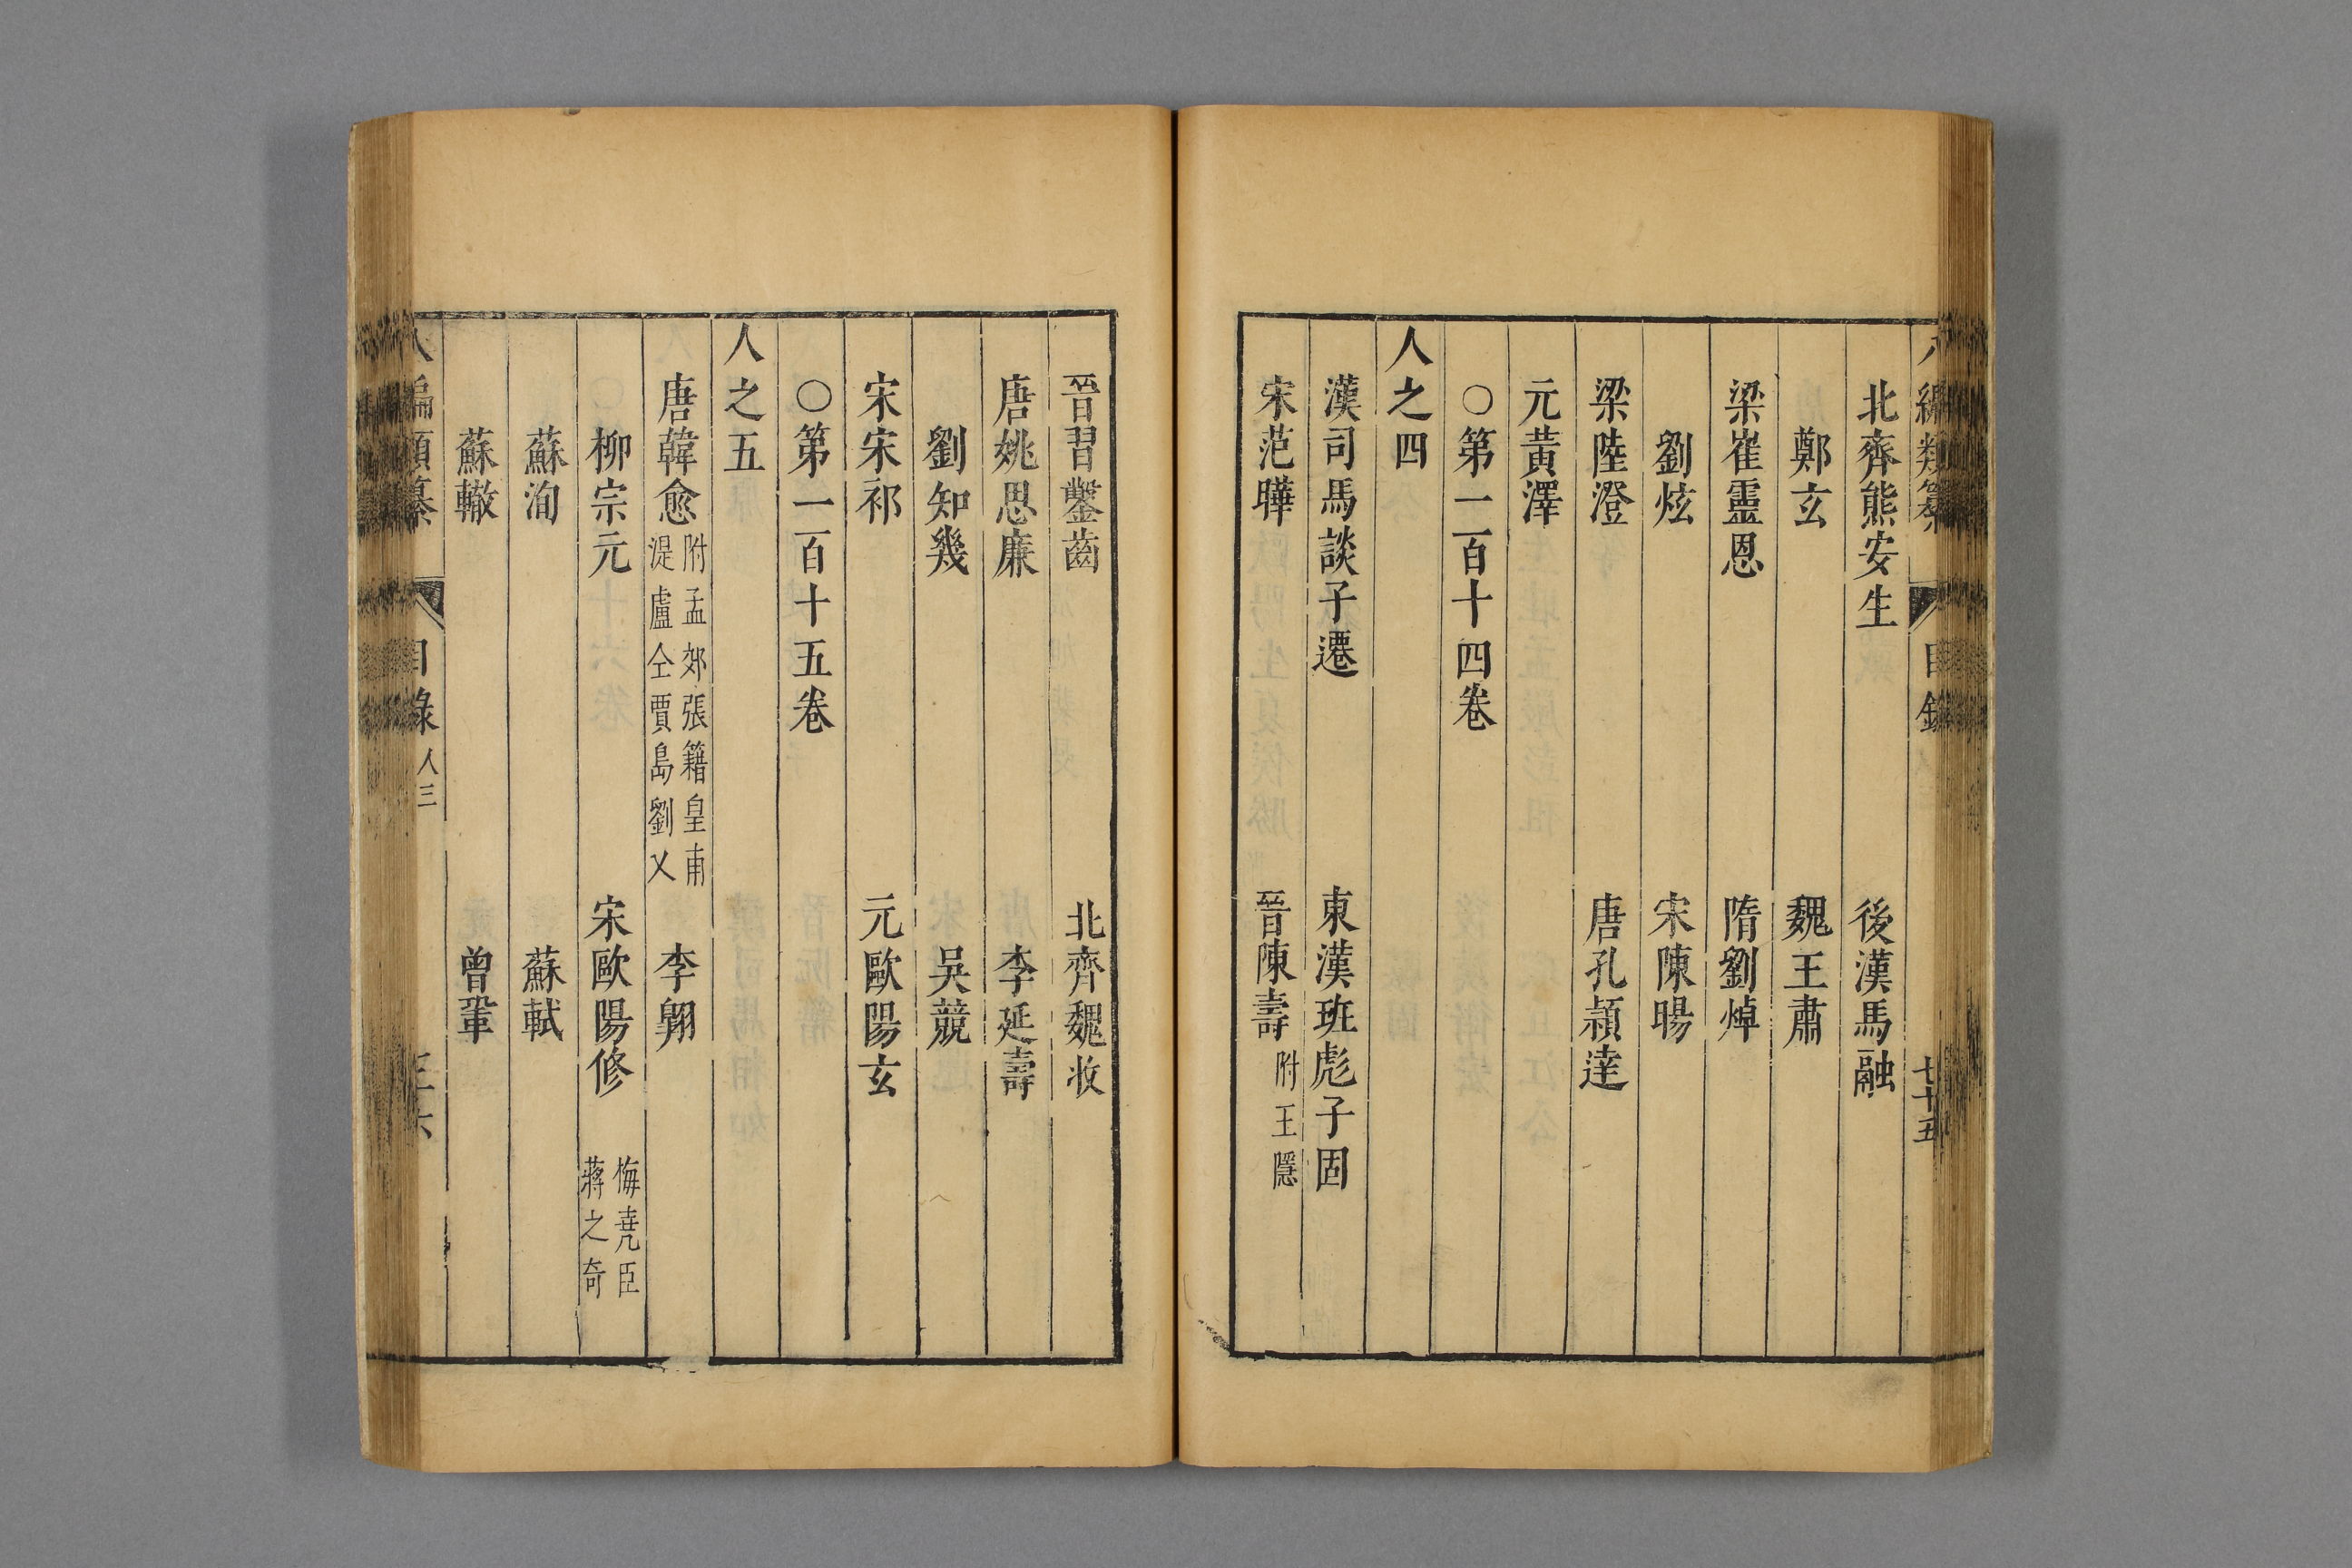 八編類纂 目錄 七十五
北齊熊安生 後漢馬融
鄭玄 魏王肅
梁崔靈恩 隋劉焯
劉炫 宋陳暘
梁陸澄 唐孔穎達
元黃澤
○第一百十四卷
人之四
漢司馬談子遷 東漢班彪子固
宋范曄 晉陳壽附王隱
晉習鑿齒 北齊魏收
唐姚思廉 李延壽
劉知幾 吳競
宋宋祁 元歐陽玄
○第一百十五卷
人之五
唐韓愈附孟郊張籍皇甫湜盧仝賈島劉乂 李翺
柳宗元 宋歐陽修梅堯臣蔣之奇
蘇洵 蘇軾
蘇轍 曾鞏
八編類纂 目錄 人三